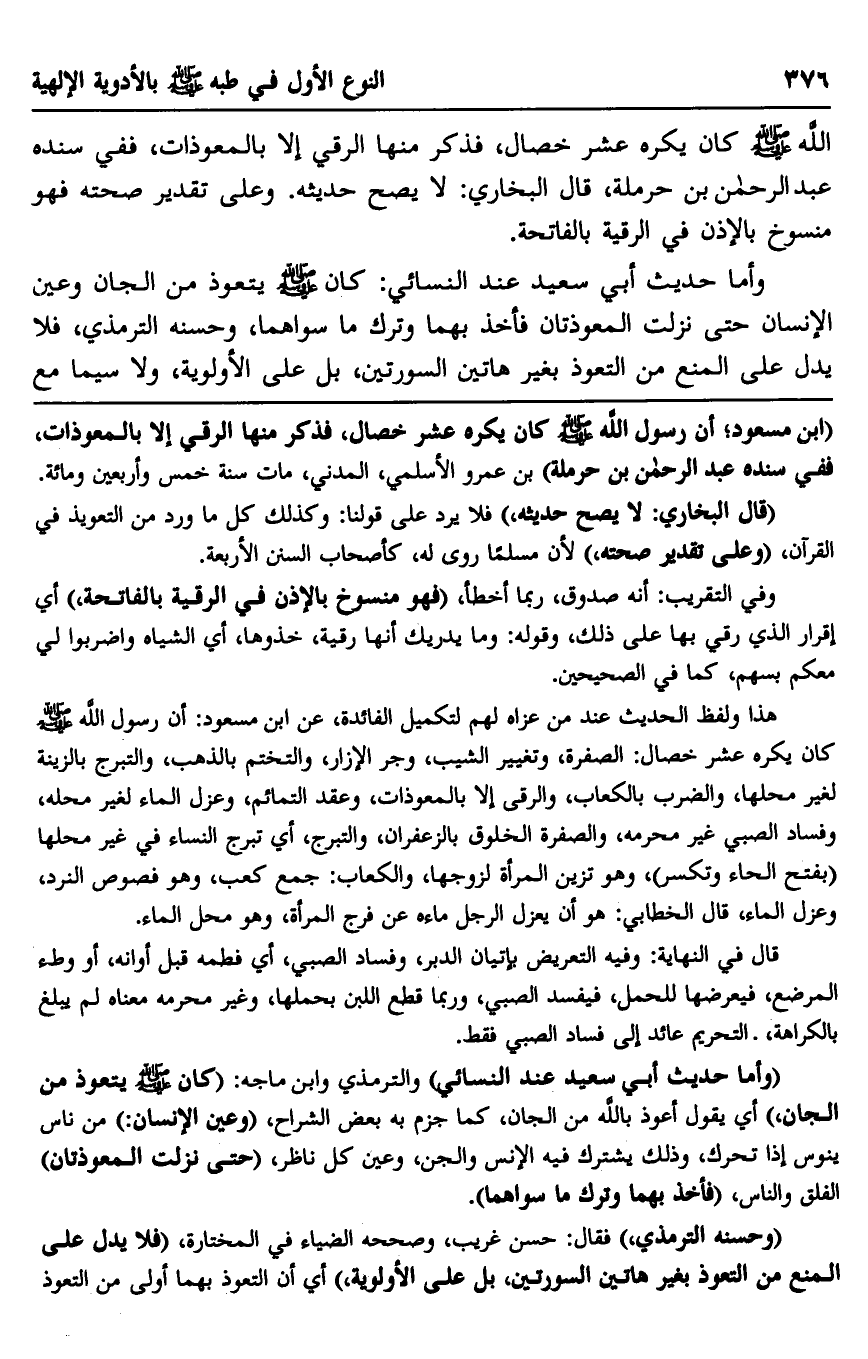 ٣٧٦ النوع الأول في طبه ﷺ بالأدوية الإلهية
اللَّه ﷺ كان يكره عشر خصال، فذكر منها الرقي إلا بالمعوذات، ففي سنده
عبد الرحمٰن بن حرملة، قال البخاري: لا يصح حديثه. وعلى تقدير صحته فهو
منسوخ بالإذن في الرقية بالفاتحة.
وأما حديث أبي سعيد عند النسائي: كان ﷺ يتعوذ من الجان وعين
الإنسان حتى نزلت المعوذتان فأخذ بهما وترك ما سواهما، وحسنه الترمذي، فلا
يدل على المنع من التعوذ بغير هاتين السورتين، بل على الأولوية، ولا سيما مع
(ابن مسعود؛ أن رسول اللَّه ﷺ كان يكره عشر خصال، فذكر منها الرقي إلا بالمعوذات،
ففي سنده عبد الرحمٰن بن حرملة) بن عمرو الأسلمي، المدني، مات سنة خمس وأربعين ومائة.
(قال البخاري: لا يصح حديثه،) فلا يرد على قولنا: وكذلك كل ما ورد من التعويذ في
القرآن، (وعلى تقدير صحته،) لأن مسلمًا روى له، كأصحاب السنن الأربعة.
وفي التقريب: أنه صدوق، ربما أخطأ، (فهو منسوخ بالإذن في الرقية بالفاتحة،) أي
إقرار الذي رقي بها على ذلك، وقوله: وما يدريك أنها رقية، خذوها، أي الشياه واضربوا لي
معكم بسهم، كما في الصحيحين.
هذا ولفظ الحديث عند من عزاه لهم لتكميل الفائدة، عن ابن مسعود: أن رسول اللَّه ﷺ
كان يكره عشر خصال: الصفرة، وتغيير الشيب، وجر الإزار، والتختم بالذهب، والتبرج بالزينة
لغير محلها، والضرب بالكعاب، والرقى إلا بالمعوذات، وعقد التمائم، وعزل الماء لغير محله،
وفساد الصبي غير محرمه، والصفرة الخلوق بالزعفران، والتبرج، أي تبرج النساء في غير محلها
(بفتح الحاء وتكسر)، وهو تزين المرأة لزوجها، والكعاب: جمع كعب، وهو فصوص النرد،
وعزل الماء، قال الخطابي: هو أن يعزل الرجل ماءه عن فرج المرأة، وهو محل الماء.
قال في النهاية: وفيه التعريض بإتيان الدبر، وفساد الصبي، أي فطمه قبل أوانه، أو وطء
المرضع، فيعرضها للحمل، فيفسد الصبي، وربما قطع اللبن بحملها، وغير محرمه معناه لم يبلغ
بالكراهة، .التحريم عائد إلى فساد الصبي فقط.
(وأما حديث أبي سعيد عند النسائي) والترمذي وابن ماجه: (كان ﷺ يتعوذ من
الجان،) أي يقول أعوذ باللَّه من الجان، كما جزم به بعض الشراح، (وعين الإنسان:) من ناس
ينوس إذا تحرك، وذلك يشترك فيه الإنس والجن، وعين كل ناظر، (حتى نزلت المعوذتان)
الفلق والناس، (فأخذ بهما وترك ما سواهما).
(وحسنه الترمذي،) فقال: حسن غريب، وصححه الضياء في المختارة، (فلا يدل على
المنع من التعوذ بغير هاتين السورتين، بل على الأولوية،) أي أن التعوذ بهما أولى من التعوذ